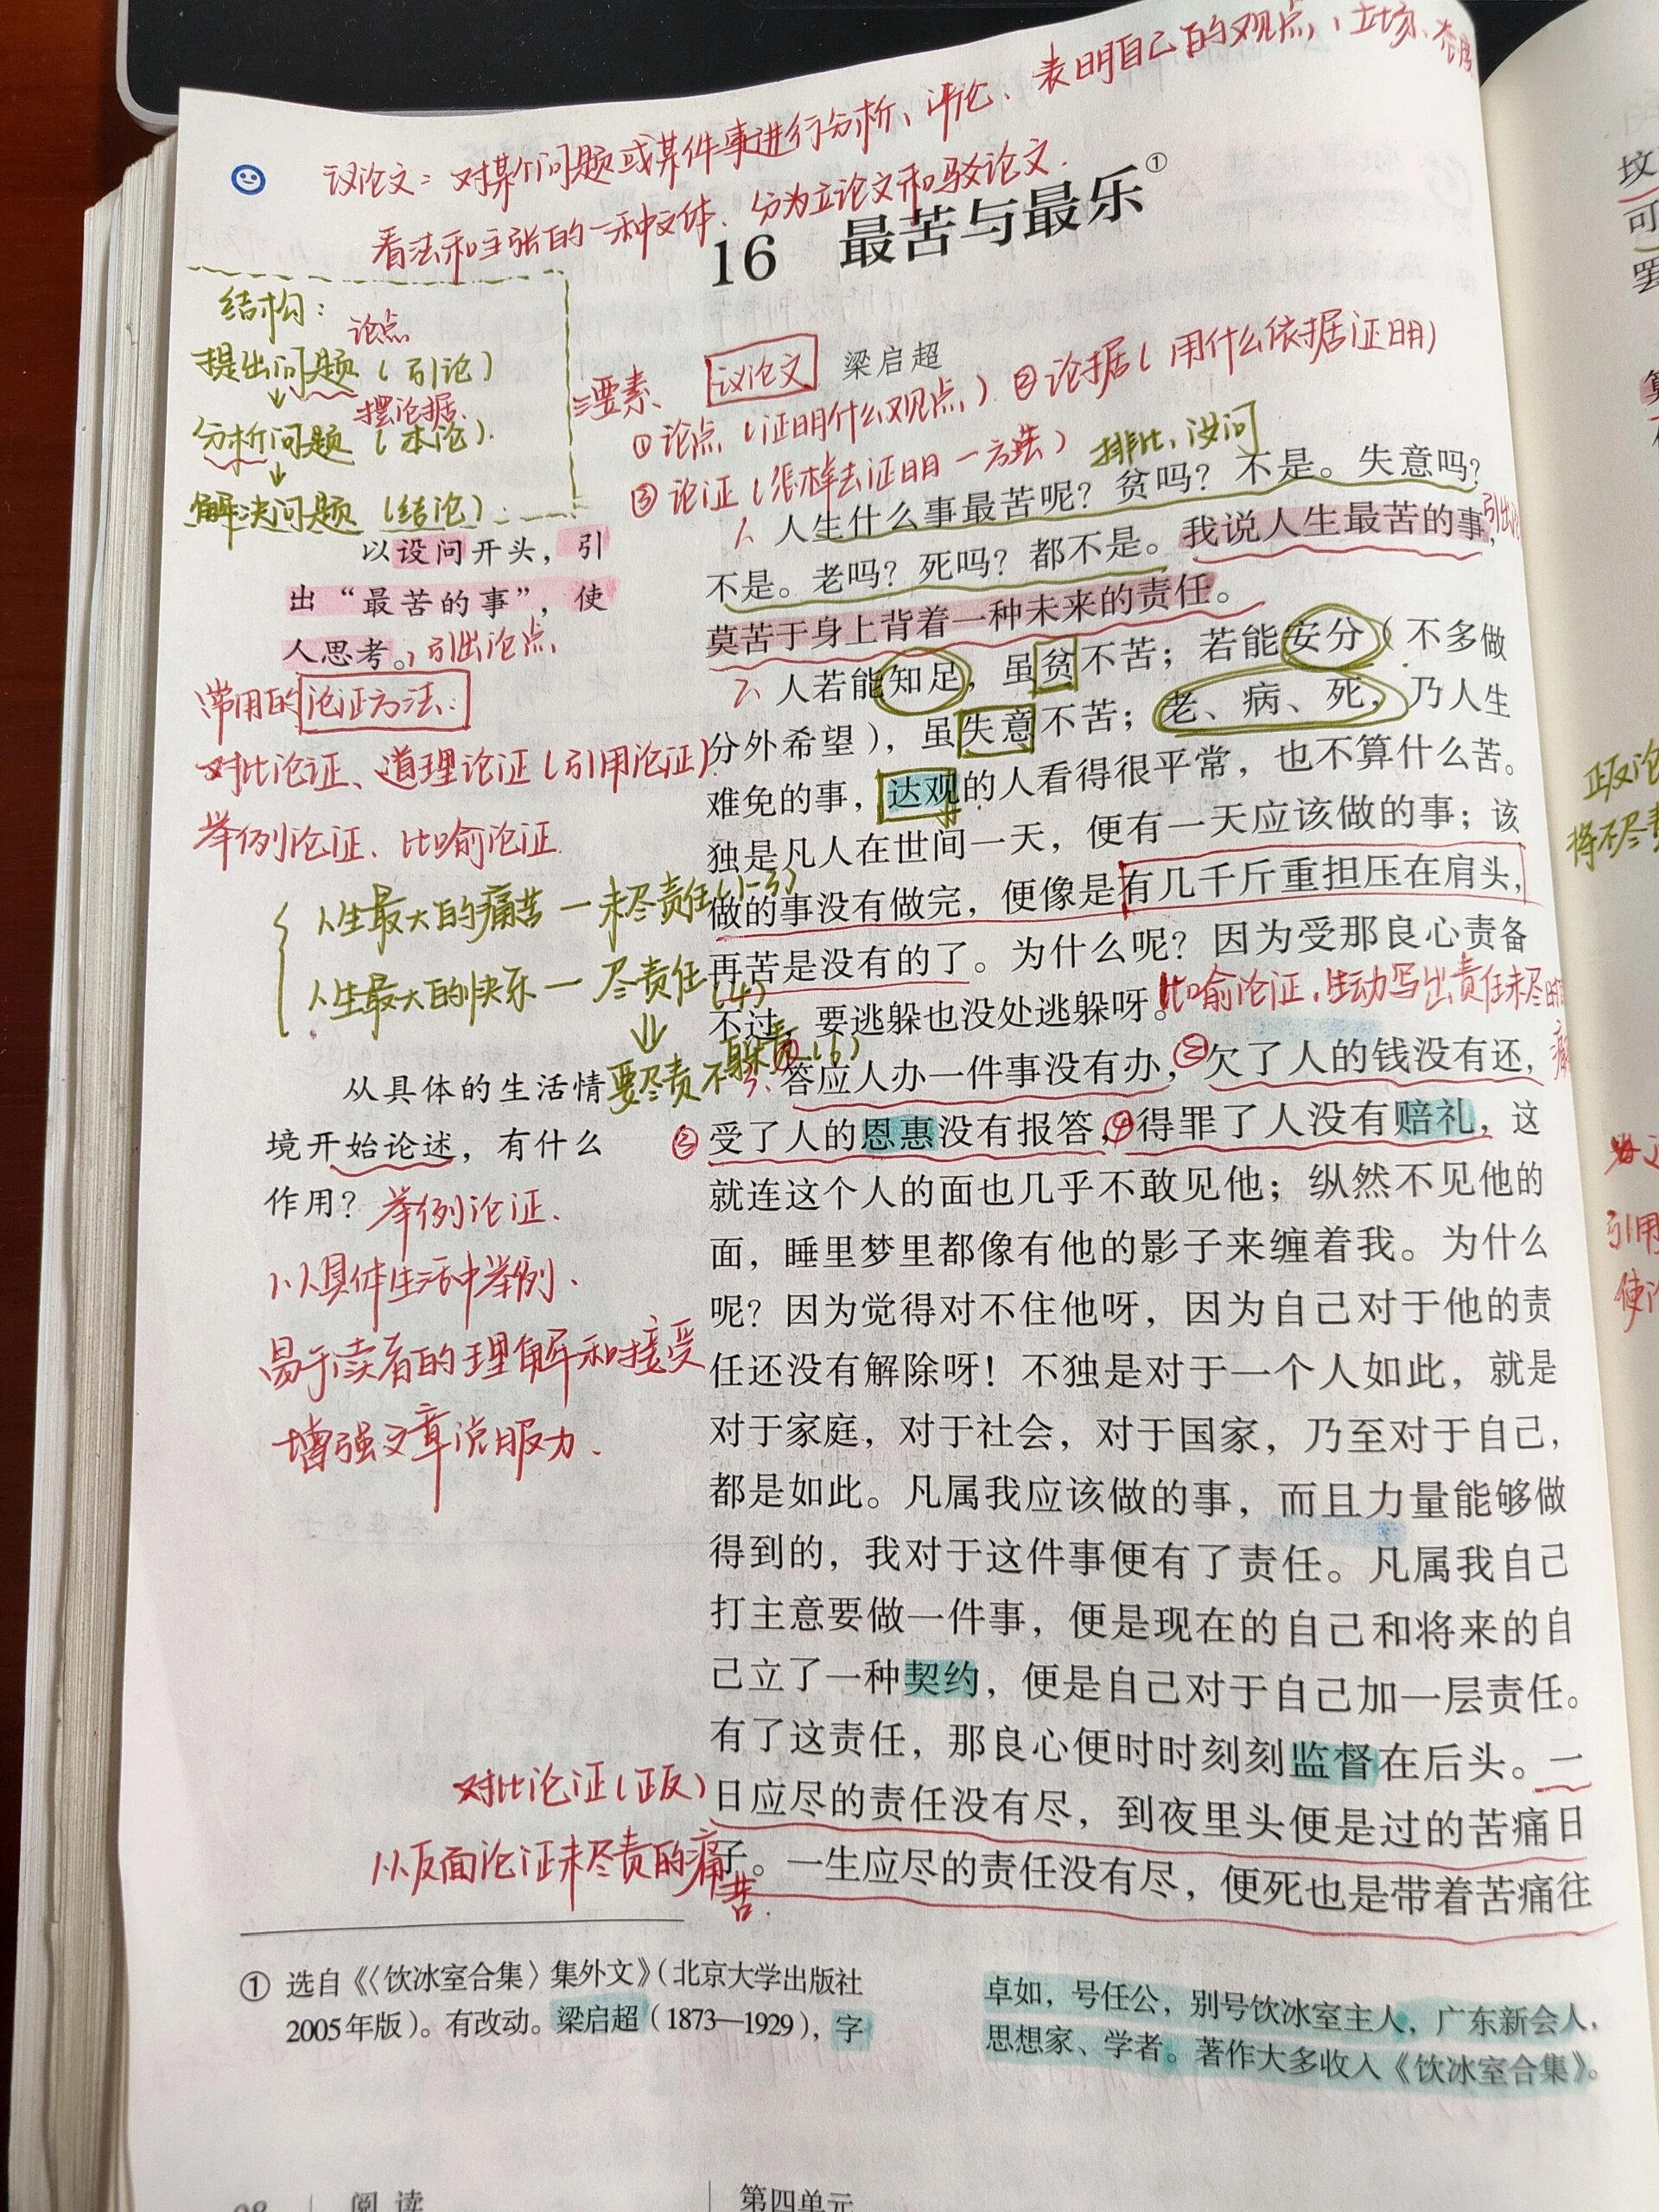 议论文：对某个问题或某件事进行分析、评论、表明自己的观点、立场、态度
看法和主张的一种文体. 分为立论文和驳论文.
16 最苦与最乐①
议论文 梁启超
结构：
论点
提出问题（引论）
摆论据.
分析问题（本论）.
解决问题（结论）.
三要素
①论点（证明什么观点）②论据（用什么依据证明）
③论证（怎样去证明—方法）
排比、设问
以设问开头，引
出“最苦的事”，使
人思考。引出论点.
常用的论证方法：
对比论证、道理论证（引用论证）.
举例论证、比喻论证.
人生最大的痛苦—未尽责任（1-3）
人生最大的快乐—尽责任（4）
要尽责不
从具体的生活情
境开始论述，有什么
作用？举例论证.
从具体生活中举例、
易于读者的理解和接受
增强文章说服力.
对比论证（正反）
从反面论证未尽责的痛
苦.
1、人生什么事最苦呢？贫吗？不是。失意吗？
不是。老吗？死吗？都不是。我说人生最苦的事，
莫苦于身上背着一种未来的责任。
2、人若能知足，虽贫不苦；若能安分（不多做
分外希望），虽失意不苦；老、病、死，乃人生
难免的事，达观的人看得很平常，也不算什么苦。
独是凡人在世间一天，便有一天应该做的事；该
做的事没有做完，便像是有几千斤重担压在肩头，
再苦是没有的了。为什么呢？因为受那良心责备
不过，要逃躲也没处逃躲呀。
比喻论证，生动写出责任未尽的
3、答应人办一件事没有办，②欠了人的钱没有还，
③受了人的恩惠没有报答，④得罪了人没有赔礼，这
就连这个人的面也几乎不敢见他；纵然不见他的
面，睡里梦里都像有他的影子来缠着我。为什么
呢？因为觉得对不住他呀，因为自己对于他的责
任还没有解除呀！不独是对于一个人如此，就是
对于家庭，对于社会，对于国家，乃至对于自己，
都是如此。凡属我应该做的事，而且力量能够做
得到的，我对于这件事便有了责任。凡属我自己
打主意要做一件事，便是现在的自己和将来的自
己立了一种契约，便是自己对于自己加一层责任。
有了这责任，那良心便时时刻刻监督在后头。一
日应尽的责任没有尽，到夜里头便是过的苦痛日
子。一生应尽的责任没有尽，便死也是带着苦痛往
① 选自《〈饮冰室合集〉集外文》（北京大学出版社
2005年版）。有改动。梁启超（1873—1929），字
卓如，号任公，别号饮冰室主人，广东新会人，
思想家、学者。著作大多收入《饮冰室合集》。
阅 读
第四单元
坟
可
罢
正反论
将不尽责
引用
使论